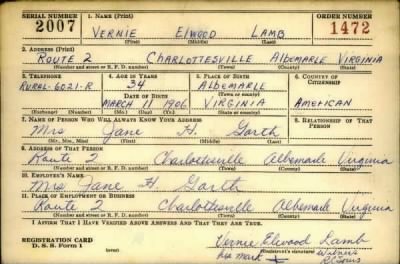 SERIAL NUMBER 1. NAME (Print) ORDER NUMBER
2007 VERNIE ELWOOD LAMB 1472
(First) (Middle) (Last)
2. ADDRESS (Print)
ROUTE 2 CHARLOTTESVILLE ALBEMARLE VIRGINIA
(Number and street or R. F. D. number) (Town) (County) (State)
3. TELEPHONE 4. AGE IN YEARS 5. PLACE OF BIRTH 6. COUNTRY OF CITIZENSHIP
RURAL-6021-R 34 ALBEMARLE
DATE OF BIRTH (Town or county)
MARCH 11 1906 VIRGINIA AMERICAN
(Exchange) (Number) (Mo.) (Day) (Yr.) (State or country)
7. NAME OF PERSON WHO WILL ALWAYS KNOW YOUR ADDRESS 8. RELATIONSHIP OF THAT PERSON
Mrs Jane H. Garth
(Mr., Mrs., Miss) (First) (Middle) (Last)
9. ADDRESS OF THAT PERSON
Route 2 Charlottesville Albemarle Virginia
(Number and street or R. F. D. number) (Town) (County) (State)
10. EMPLOYER'S NAME
Mrs. Jane H Garth
11. PLACE OF EMPLOYMENT OR BUSINESS
Route 2 Charlottesville Albemarle Virginia
(Number and street or R. F. D. number) (Town) (County) (State)
I AFFIRM THAT I HAVE VERIFIED ABOVE ANSWERS AND THAT THEY ARE TRUE.
REGISTRATION CARD Vernie Elwood Lamb
D. S. S. Form 1 his mark (Registrant's signature) Witness